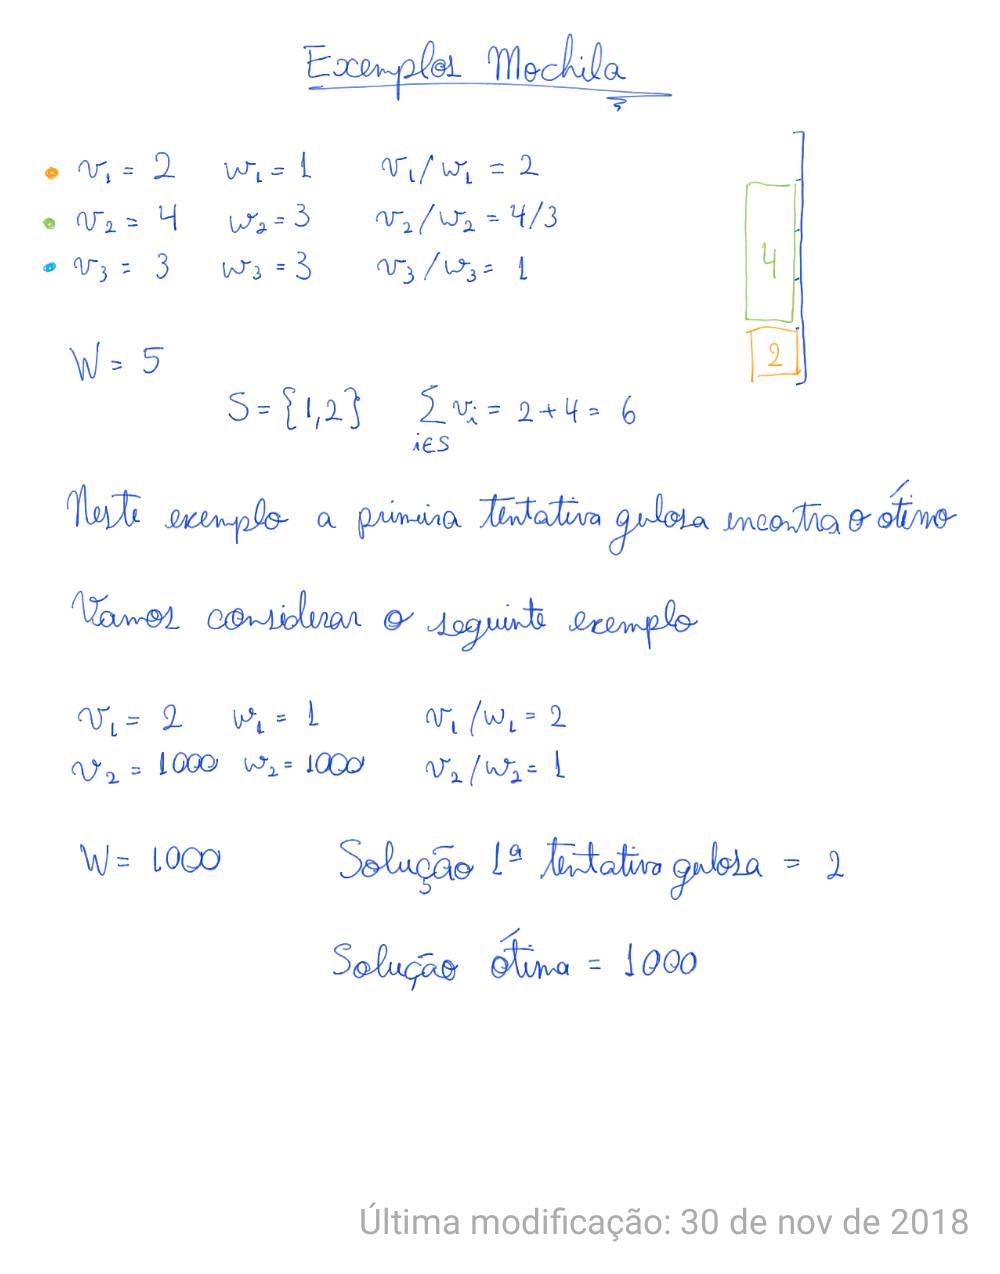 Exemplos Mochila
v₁ = 2 w₁ = 1 v₁/w₁ = 2
v₂ = 4 w₂ = 3 v₂/w₂ = 4/3
v₃ = 3 w₃ = 3 v₃/w₃ = 1
4
2
W = 5
S = {1,2} ∑ vᵢ = 2 + 4 = 6
i∈S
Neste exemplo a primeira tentativa gulosa encontra o ótimo
Vamos considerar o seguinte exemplo
v₁ = 2 w₁ = 1 v₁/w₁ = 2
v₂ = 1000 w₂ = 1000 v₂/w₂ = 1
W = 1000 Solução 1ª tentativa gulosa = 2
Solução ótima = 1000
Última modificação: 30 de nov de 2018